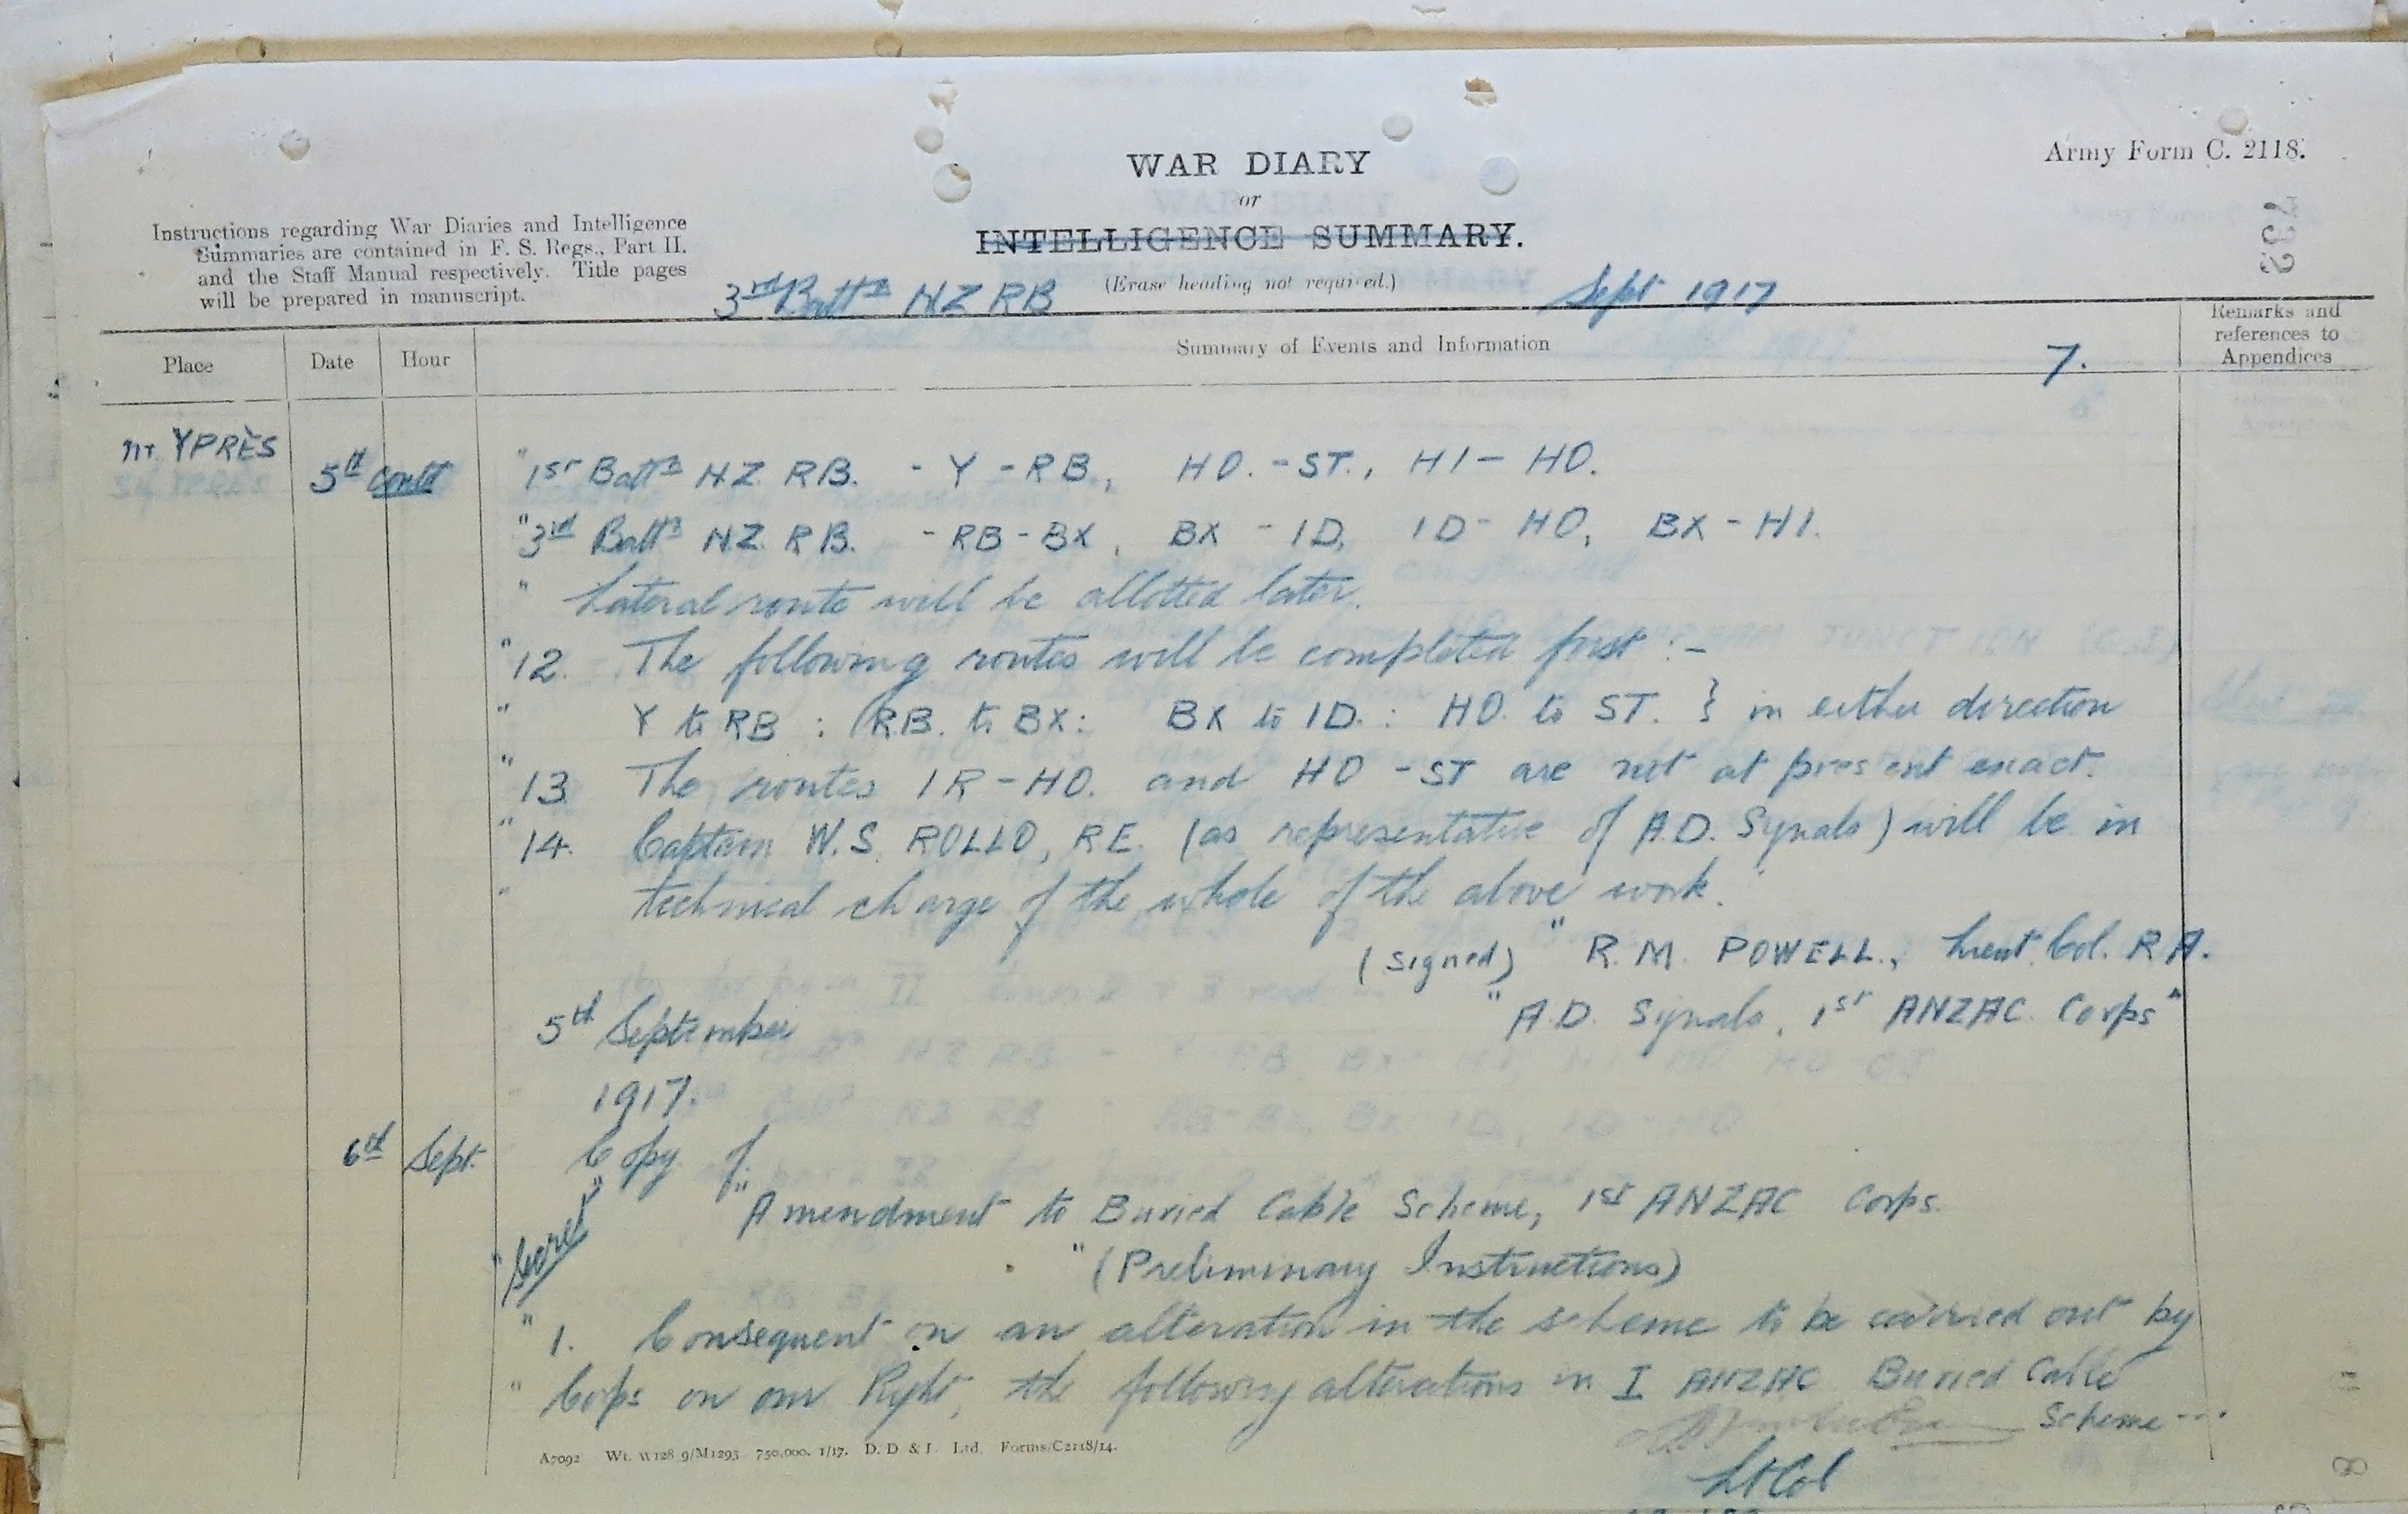 Army Form C. 2118.
WAR DIARY
or
INTELLIGENCE SUMMARY.
(Erase heading not required.)
Instructions regarding War Diaries and Intelligence
Summaries are contained in F. S. Regs., Part II.
and the Staff Manual respectively. Title pages
will be prepared in manuscript.
732
3rd Battn NZ RB Sept 1917
Place Date Hour Summary of Events and Information 7. Remarks and
references to
Appendices
nr. YPRÈS 5th contd "1st Battn N.Z. RB. - Y - RB, HO. - ST., HI - HO.
"3rd Battn N.Z. RB. - RB - BX, BX - ID, ID - HO, BX - HI.
" Lateral route will be allotted later.
"12. The following routes will be completed first :-
" Y to RB : RB. to BX : BX to ID. : HO. to ST. } in either direction
"13. The routes IR - HO. and HO - ST are not at present exact.
"14. Captain W.S. ROLLO, RE. (as representative of A.D. Signals) will be in
" technical charge of the whole of the above work.
(signed) " R.M. POWELL., Lieut. Col. R.A.
" A.D. Signals, 1st ANZAC Corps"
5th September
1917.
6th Sept. Copy of:
"Secret" "Amendment to Buried Cable Scheme, 1st ANZAC Corps.
" (Preliminary Instructions)
" 1. Consequent on an alteration in the scheme to be carried out by
" Corps on our Right, the following alterations in I ANZAC Buried Cable
Scheme ...
Lt Col
A7092 Wt. W128 9/M1293 750,000. 1/17. D. D & L. Ltd. Forms/C2118/14.